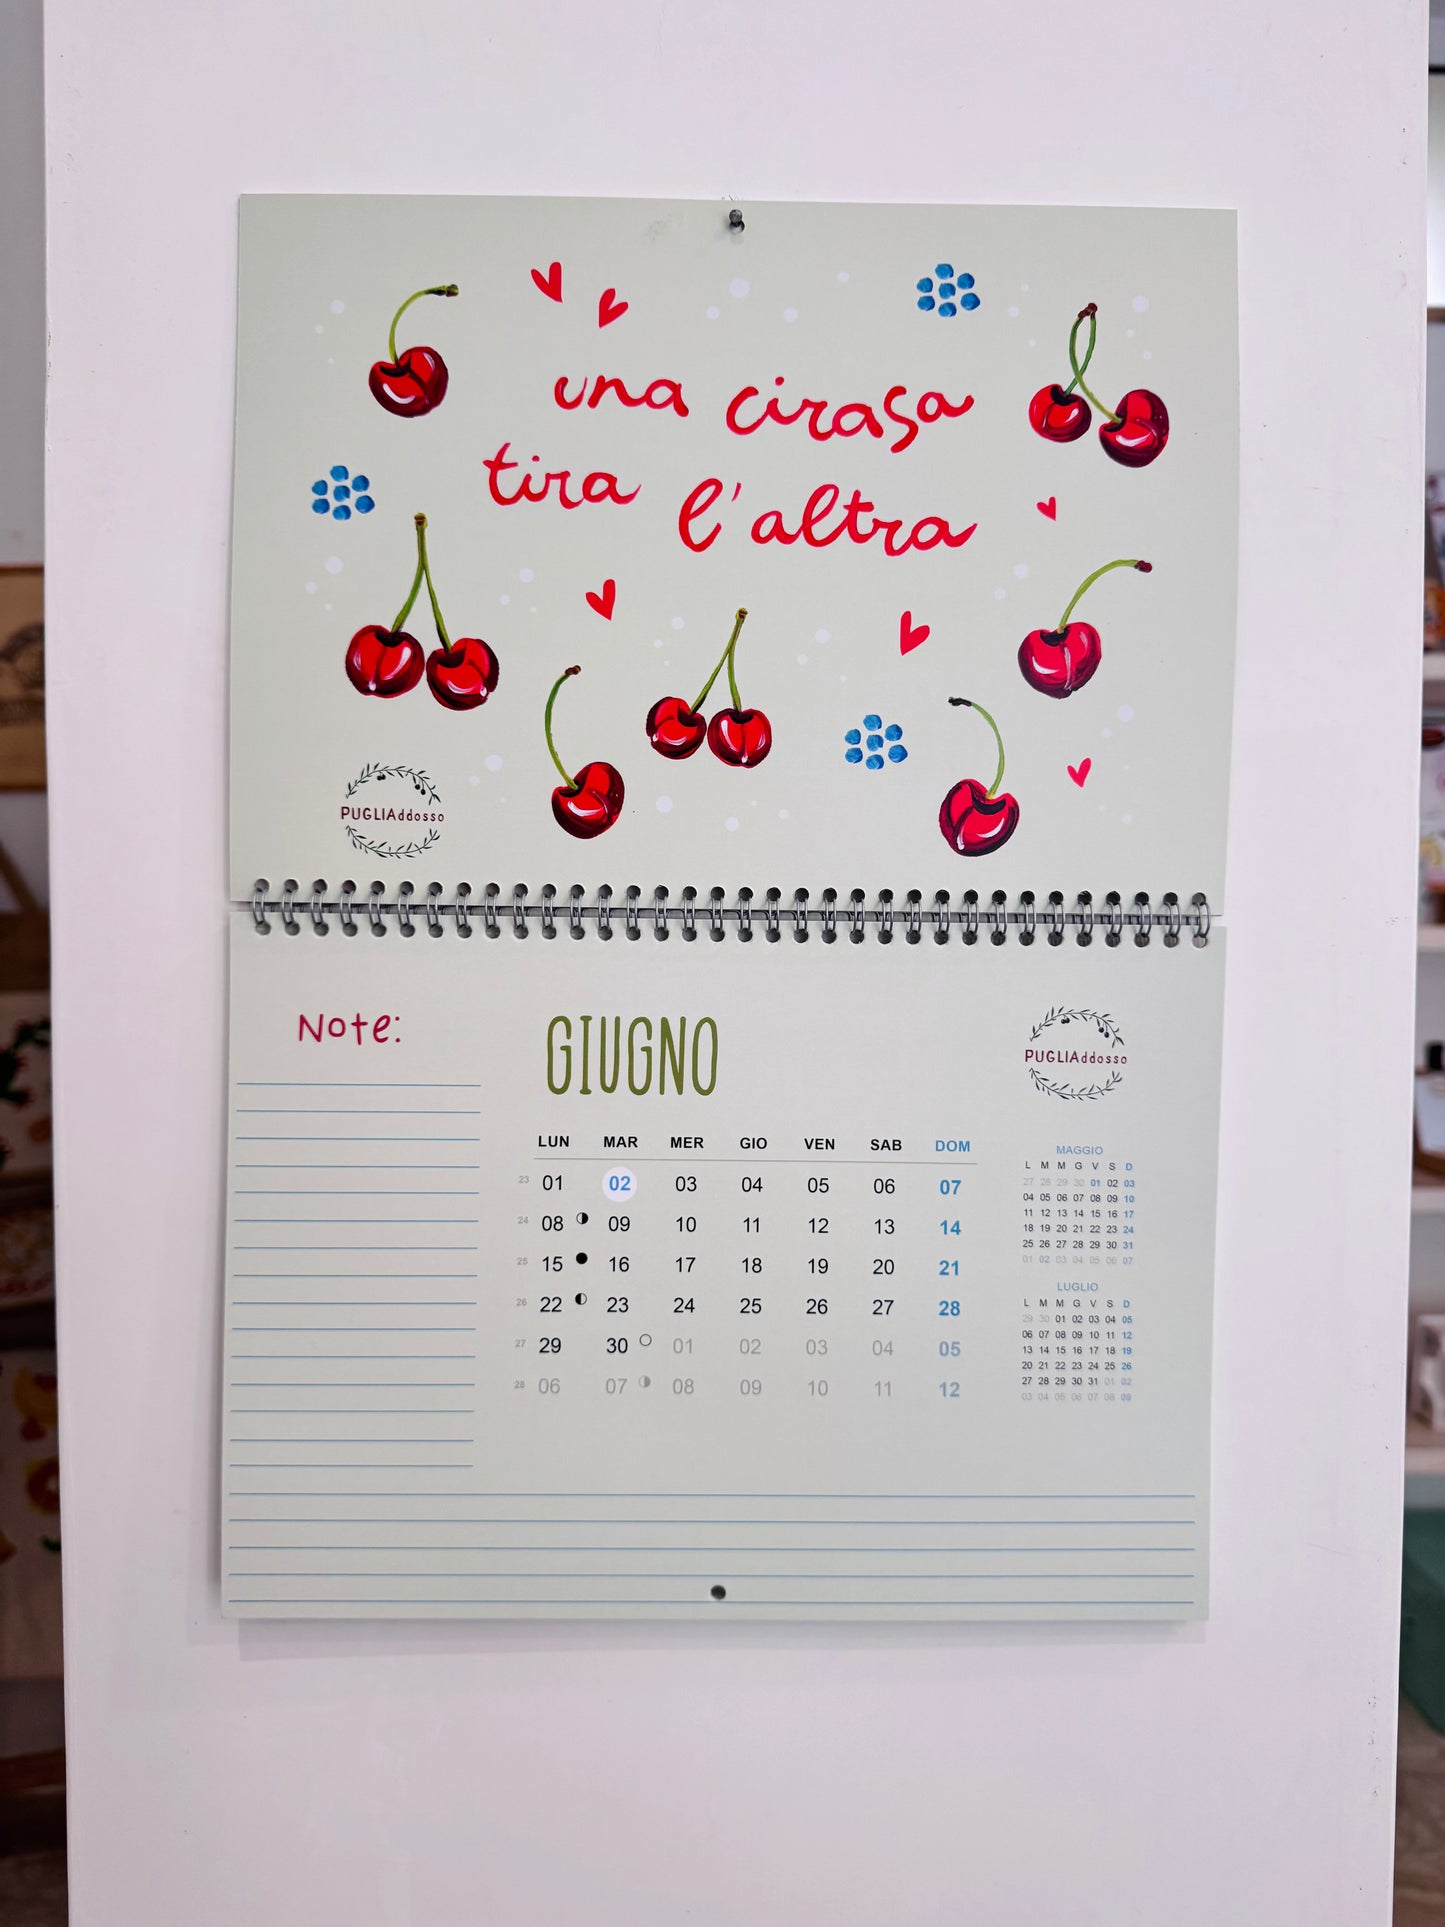 una cirasa
tira l'altra
PUGLIAddosso
Note:
GIUGNO
PUGLIAddosso
LUN MAR MER GIO VEN SAB DOM
23 01 02 03 04 05 06 07
24 08 09 10 11 12 13 14
25 15 16 17 18 19 20 21
26 22 23 24 25 26 27 28
27 29 30 01 02 03 04 05
28 06 07 08 09 10 11 12
MAGGIO
L M M G V S D
27 28 29 30 01 02 03
04 05 06 07 08 09 10
11 12 13 14 15 16 17
18 19 20 21 22 23 24
25 26 27 28 29 30 31
01 02 03 04 05 06 07
LUGLIO
L M M G V S D
29 30 01 02 03 04 05
06 07 08 09 10 11 12
13 14 15 16 17 18 19
20 21 22 23 24 25 26
27 28 29 30 31 01 02
03 04 05 06 07 08 09